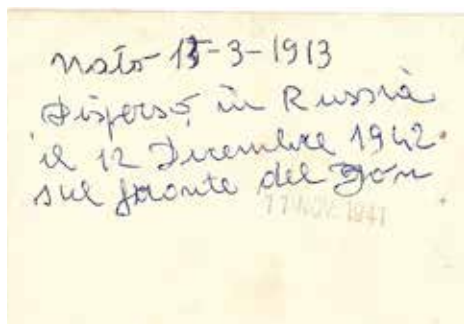 nato 15-3-1913
Disperso, in Russia
il 12 Dicembre 1942.
sul fronte del Don
NOV. 1941